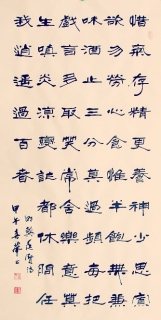 惜氣存精更養神少思寡
欲勿勞心食惟半飽無兼
味酒止三分莫過頻每把
戲言多取笑常含樂意莫
生嗔炎涼變詐都休問任
我逍遙過百春
明龔廷賢詩
甲午